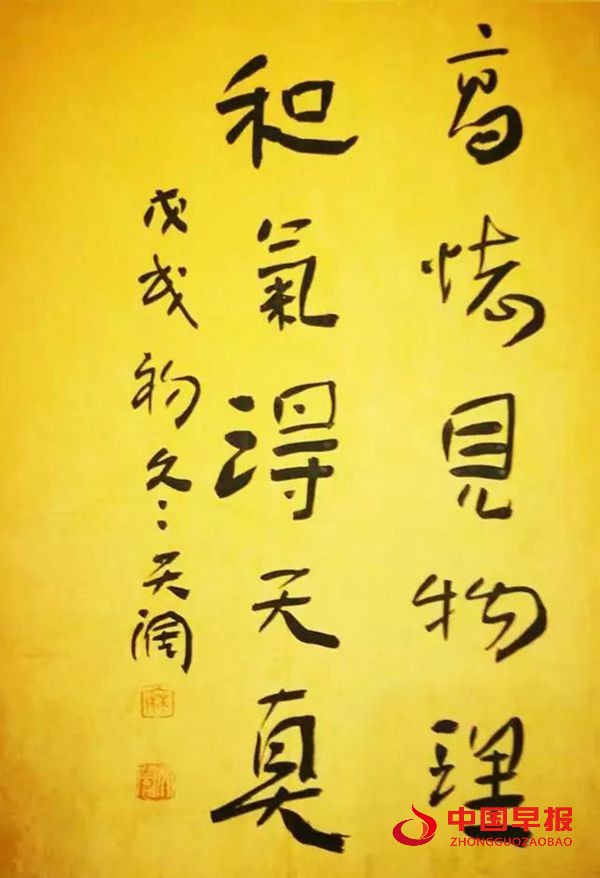 高懷見物理
和氣得天真
戊戌初冬天濶
中国早报
ZHONGGUOZAOBAO